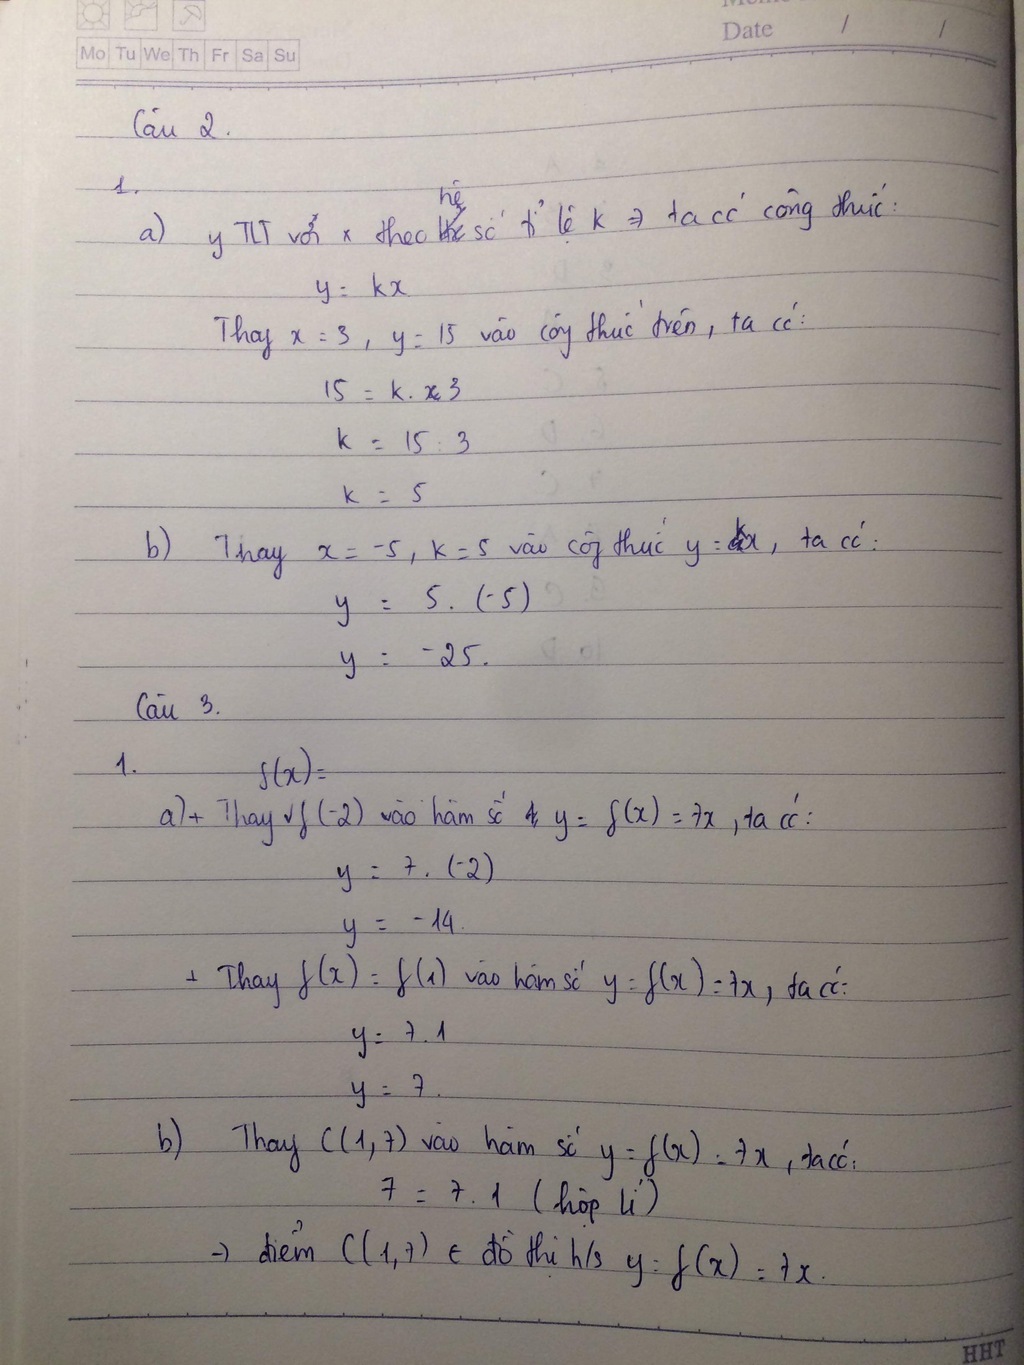 Date / /
Mo Tu We Th Fr Sa Su
Câu 2.
1.
a) y TLT với x theo hệ số tỉ lệ k => ta có công thức:
y = kx
Thay x = 3, y = 15 vào công thức trên, ta có:
15 = k. 3
k = 15 : 3
k = 5
b) Thay x = -5, k = 5 vào công thức y = kx, ta có:
y = 5. (-5)
y = -25.
Câu 3.
1. f(x) =
a) + Thay f(-2) vào hàm số y = f(x) = 7x, ta có:
y = 7. (-2)
y = -14.
+ Thay f(x) = f(1) vào hàm số y = f(x) = 7x, ta có:
y = 7.1
y = 7.
b) Thay C(1,7) vào hàm số y = f(x) = 7x, ta có:
7 = 7.1 (hợp lí)
-> điểm C(1,7) ∈ đồ thị h/s y = f(x) = 7x.
HHT